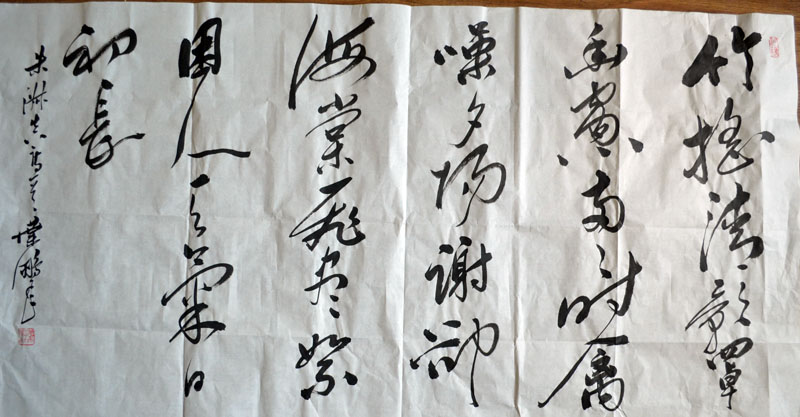 竹搖清影罩
幽窗兩兩时禽
噪夕陽謝卻
海棠飛尽絮
困人天氣日
初長
朱淑真